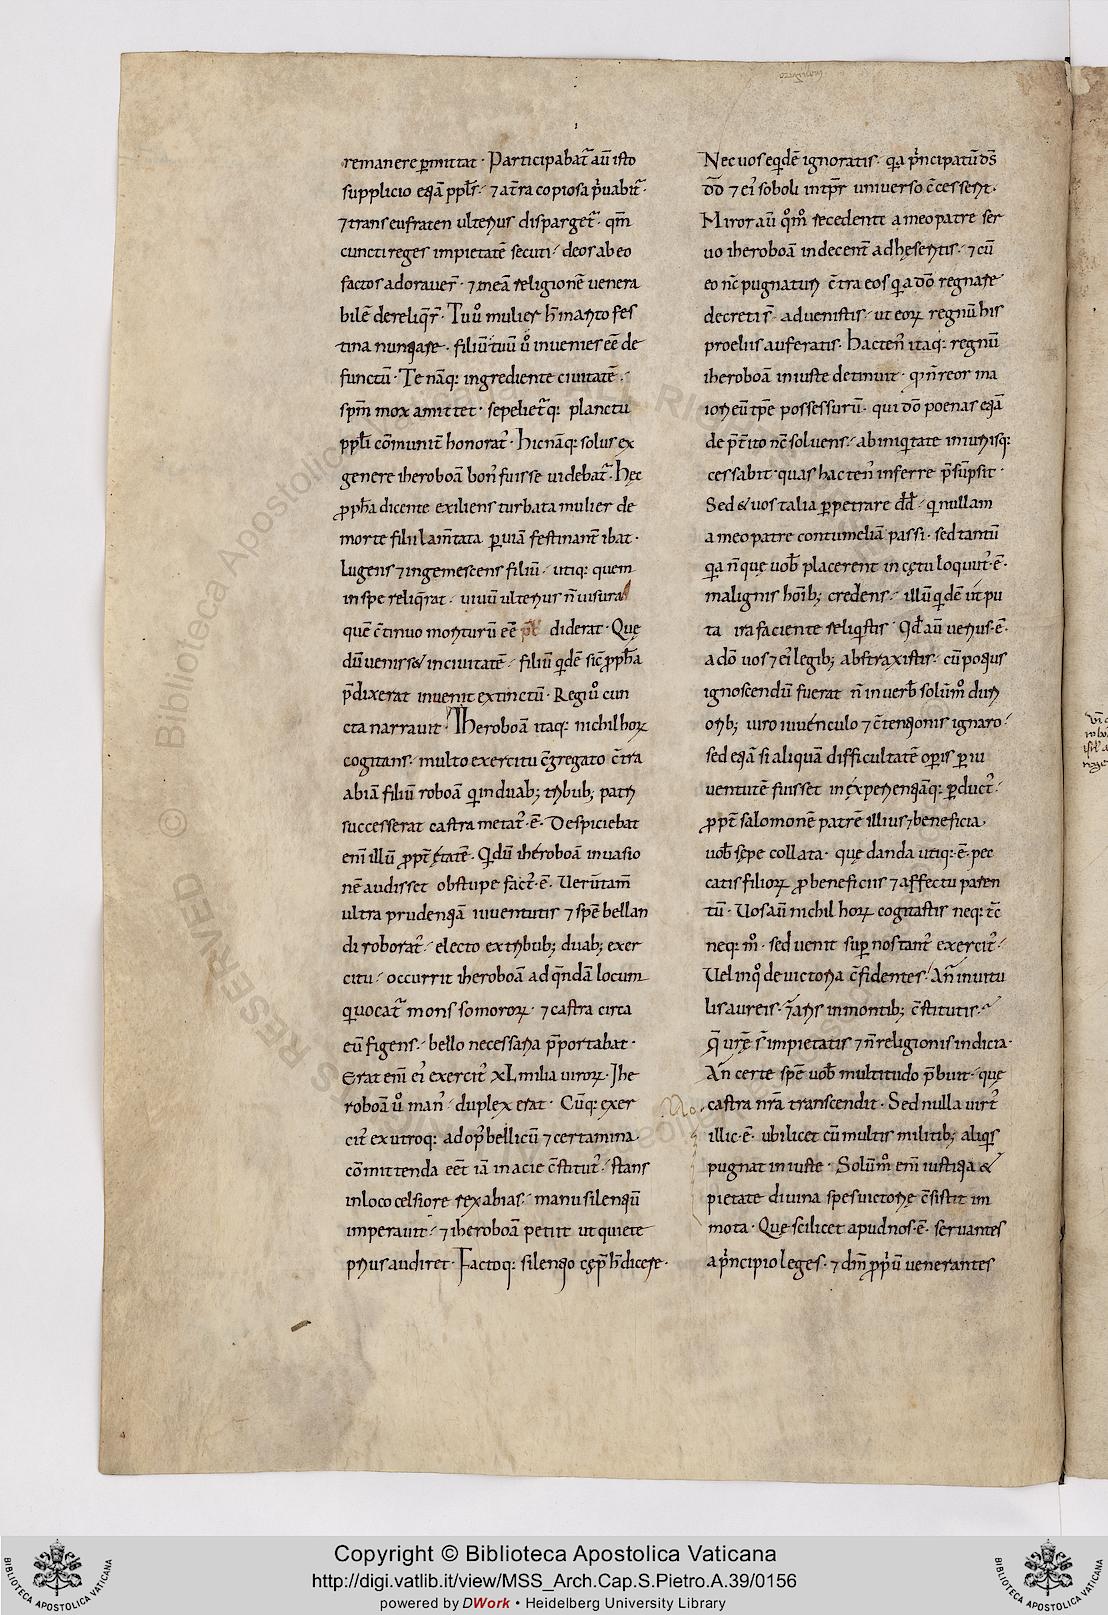 remanere p̄mittat · Participabat᷒ aū isto
supplicio eqā pplꝰ · ⁊ at̄ra copiosa p̄uabit᷒ ·
⁊ trans eufraten ulterius disparget᷒ · qm̄
cuncti reges impietatē secuti · deos ab eo
factos adorauer̄ · ⁊ meā religionē venera
bilē dereliq̄r̄ · Tu ů mulier h̄ marito fes
tina nunciare · filiū tuū ů inuenies eē de
functū · Te nāq; ingrediente ciuitatē ·
spm̄ mox amittet · sepeliet᷒q; planctu
ppl̄i cōmunit̄ honorat᷒ · Hic nāq; solus ex
genere iheroboā bonꝰ fuisse uidebat᷒ · Hęc
ꝓph̄a dicente exiliens turbata mulier de
morte filii lam̄tata p̄ uiā festinant̄ ibat ·
Lugens ⁊ ingemescens filiū · utiq; quem
in spe reliq̄rat · uiuū ulterius n̄ uisura
quē c̄tinuo moriturū eē diderat · Quę
dū ueniss& in ciuitatē · filiū q̇dē sic̄ ꝓph̄a
p̄dixerat inuenit extinctū · Regi ů cun
cta narrauit · Iheroboā itaq; nichil hoꝝ
cogitans · multo exercitu c̄gregato c̄tra
abiā filiū roboā q̇ in duab; trib; patri
successerat castra metat᷒ · ē · Despiciebat
eni̅ illū ꝓpt̄ ętatē · Q̇dū iheroboā inuasio
nē audisset obstupefact᷒ · ē · Uerūtam̄
ultra prudentiā iuuentutis ⁊ spē bellan
di roborat᷒ · electo ex tribub; duab; exer
citu · occurrit iheroboā ad q̄ndā locum
q̇ uocat᷒ mons somoroꝝ · ⁊ castra circa
eū figens · bello necessaria p̄portabat ·
Erat eni̅ eiꝰ exercitꝰ XL milia uiroꝝ · Ihe
roboā ů manꝰ · duplex erat · Cūq; exer
citꝰ ex utroq; ad opꝰ bellicū ⁊ certamina
cōmittenda eēt iā in acie c̄stitutꝰ · stans
in loco celsiore rex abias · manu silentiū
imperauit · ⁊ iheroboā petiit ut quiete
prius audiret · Facto q; silentio cępit h̄ dicere ·
Nec uos eq̇dē ignoratis · q̇a p̄ncipatū d̄s
dd̄ ⁊ eiꝰ soboli in tp̄r universo c̄cesserit ·
Miror aū q̊m̊ recedente a meo patre ser
uo iheroboā indecent̄ adhęseritis · ⁊ cū
eo nc̄ pugnaturi c̄tra eos q̇ a dō regnare
decreti s̄ · aduenistis · ut eoꝝ regnū his
proeliis auferatis · Hactenꝰ itaq; regnū
iheroboā iniuste detinuit · q̇ n̄ reor ma
iori eū tp̄e possessurū · qui dō poenas eqā
de p̄t̄ito nc̄ soluens · ab iniq̇tate iniuriisq;
cessabit · quas hactenꝰ inferre p̄sūpsit ·
Sed & uos talia p̄petrare dd̄ · q̇ nullam
a meo patre contumeliā passi · sed tantū
q̇a n̄ quę uob̄ placerent in cętu loquut᷒ · ē ·
malignis hoīb; credens · illū q̇dē ut pu
ta ira faciente reliq̇stis · Q̇d aū uerius · ē ·
a dō uos ⁊ eiꝰ legib; abstraxistis · cū potius
ignoscendū fuerat n̄ in uerb̄ solūm̊ duri
orib; uiro iuuenculo ⁊ c̄tentionis ignaro ·
sed etiā si aliquā difficultatē opis p̄ iu
uentutē fuisset inexperientiāq; p̄duct᷒ ·
ꝓpt̄ salomonē patrē illius ⁊ beneficia
uob̄ sępe collata · quę danda utiq; · ē · pec
catis filioꝝ ꝓ beneficiis ⁊ affectu paren
tū · Uos aū nichil hoꝝ cogitastis neq; tc̄
neq; m̊ · sed uenit sup̄ nos tantꝰ exercitꝰ ·
Uel in q̊ de uictoria c̄fidentes · An̄ in uitu
lis aureis · ⁊ aris in montib; c̄stitutis ·
q̄ ur̄ę s̄ impietatis ⁊ n̄ religionis indicia ·
An certe spē uob̄ multitudo p̄buit · quę
castra nr̄a transcendit · Sed nulla uirtꝰ
illic · ē · ubi licet cū multis militib; aliq̇s
pugnat iniuste · Solūm̊ eni̅ iustitia &
pietate diuina spes uictorię c̄sistit im
mota · Quę scilicet apud nos · ē · seruantes
a p̄ncipio leges · ⁊ dm̄ ꝓpriū uenerantes
Copyright © Biblioteca Apostolica Vaticana
http://digi.vatlib.it/view/MSS_Arch.Cap.S.Pietro.A.39/0156
powered by DWork • Heidelberg University Library